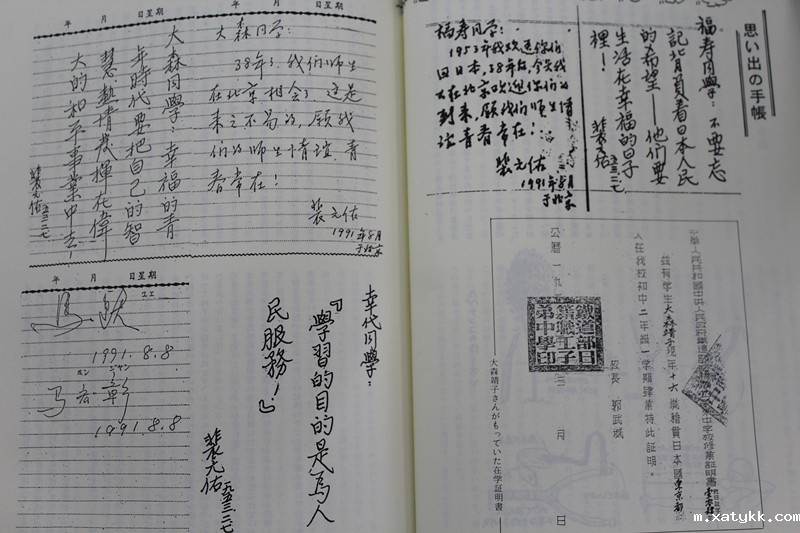 思い出の手帳
福寿同學：不要忘
記背負着日本人民
的希望——他們要
生活在幸福的日子
裡！
裴元佑
福寿同学：
1953年我欢送你们
回日本，38年后，今天我
又在北京欢迎你们的
到来，愿我们师生情
谊青春常在！
裴元佑
1991年8月
于北京
公曆一九
月
日
鐵道部日
籍職工子
弟中學印
校長 郭武城
茲有学生大森靖子現年十六歲籍貫日本國東京都
人在我校初中二年級一學期肄業特此証明。
大森靖子さんがもっていた在学証明書
年 月 日星期
大森同学：
38年了，我们师生
在北京相会了，这是
来之不易的，愿我
们的师生情谊，青
春常在！
裴元佑
1991年8月
于北京
年 月 日星期
大森同學：幸福的青
年時代要把自己的智
慧、熱情發揮在偉
大的和平事業中去！
裴元佑
五三.二.七
年 月 日星期
1991.8.8
马
1991.8.8
幸代同學：
『學習的目的是為人
民服務！』
裴元佑
五三.二.七
m.xatykk.com